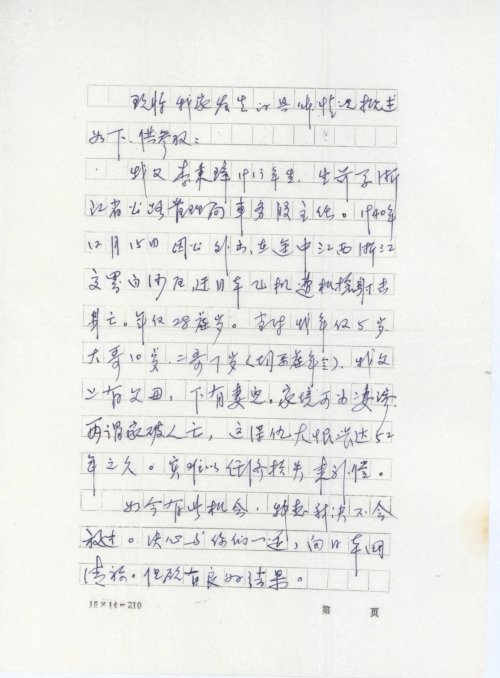 现将我家发生的具体情况概述
如下，供参考：
我父李秉锋1913年生，生前于浙
江省公路管理局车务股主任。1940年
12月15日因公外出，在途中江西浙江
交界白沙店，遭日军飞机机枪射击
身亡。年仅28岁。当时我年仅5岁，
大哥10岁，二哥7岁，我父
上有父母，下有妻儿，家境可为凄惨，
所谓家破人亡，这深仇大恨长达52
年之久。实难以任何损失来补偿。
如今有此机会，我决不会
放过。决心与你们一道，向日军国
清祘。但破有良好结果。
15×14=210
第 页